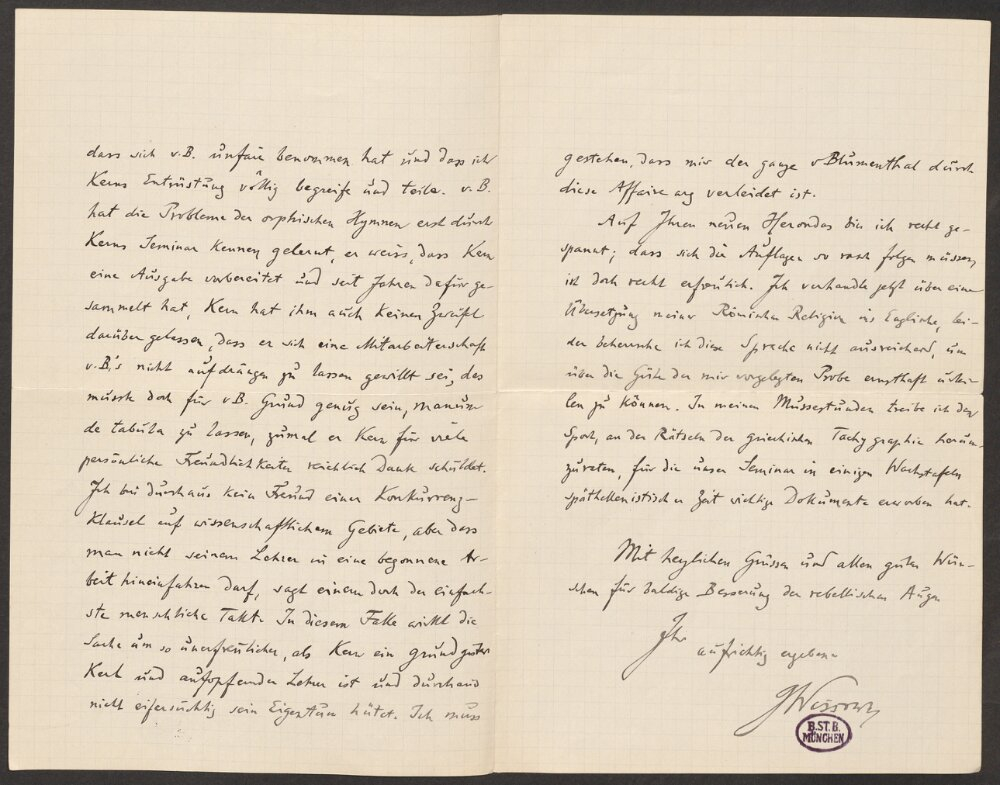 dass sich v. B. unfair benommen hat und dass ich
Kerns Entrüstung völlig begreife und teile. v. B.
hat die Probleme der orphischen Hymnen erst durch
Kerns Seminar kennen gelernt, er weiss, dass Kern
eine Ausgabe vorbereitet und seit Jahren dafür ge-
sammelt hat, Kern hat ihm auch keinen Zweifel
darüber gelassen, dass er sich eine Mitarbeiterschaft
v. B.'s nicht aufdrängen zu lassen gewillt sei, das
müsste doch für v. B. Grund genug sein, manum
de tabula zu lassen, zumal er Kern für viele
persönliche Freundlichkeiten reichlich Dank schuldet.
Ich bin durchaus kein Freund einer Konkurrenz-
klausel auf wissenschaftlichem Gebiete, aber dass
man nicht seinem Lehrer in eine begonnene Ar-
beit hineinfahren darf, sagt einem doch der einfach-
ste menschliche Takt. In diesem Falle wirkt die
Sache um so unerfreulicher, als Kern ein grundguter
Kerl und aufopfernder Lehrer ist und durchaus
nicht eifersüchtig sein Eigentum hütet. Ich muss
gestehen, dass mir der ganze v Blumenthal durch
diese Affaire arg verleidet ist.
Auf Ihren neuen Herondas bin ich recht ge-
spannt; dass sich die Auflagen so rasch folgen müssen,
ist doch recht erfreulich. Ich verhandle jetzt über eine
Übersetzung meiner Römischen Religion ins Englische, lei-
der beherrsche ich diese Sprache nicht ausreichend, um
über die Güte der mir vorgelegten Probe ernsthaft urtei-
len zu können. In meinen Mussestunden treibe ich den
Sport, an den Rätseln der griechischen Tachygraphie herum-
zuraten, für die unser Seminar in einigen Wachstafeln
späthellenistischer Zeit wichtige Dokumente erworben hat.
Mit herzlichen Grüssen und allen guten Wün-
schen für baldige Besserung der rebellischen Augen
Ihr
aufrichtig ergebener
GWissowa
B.ST.B.
MÜNCHEN